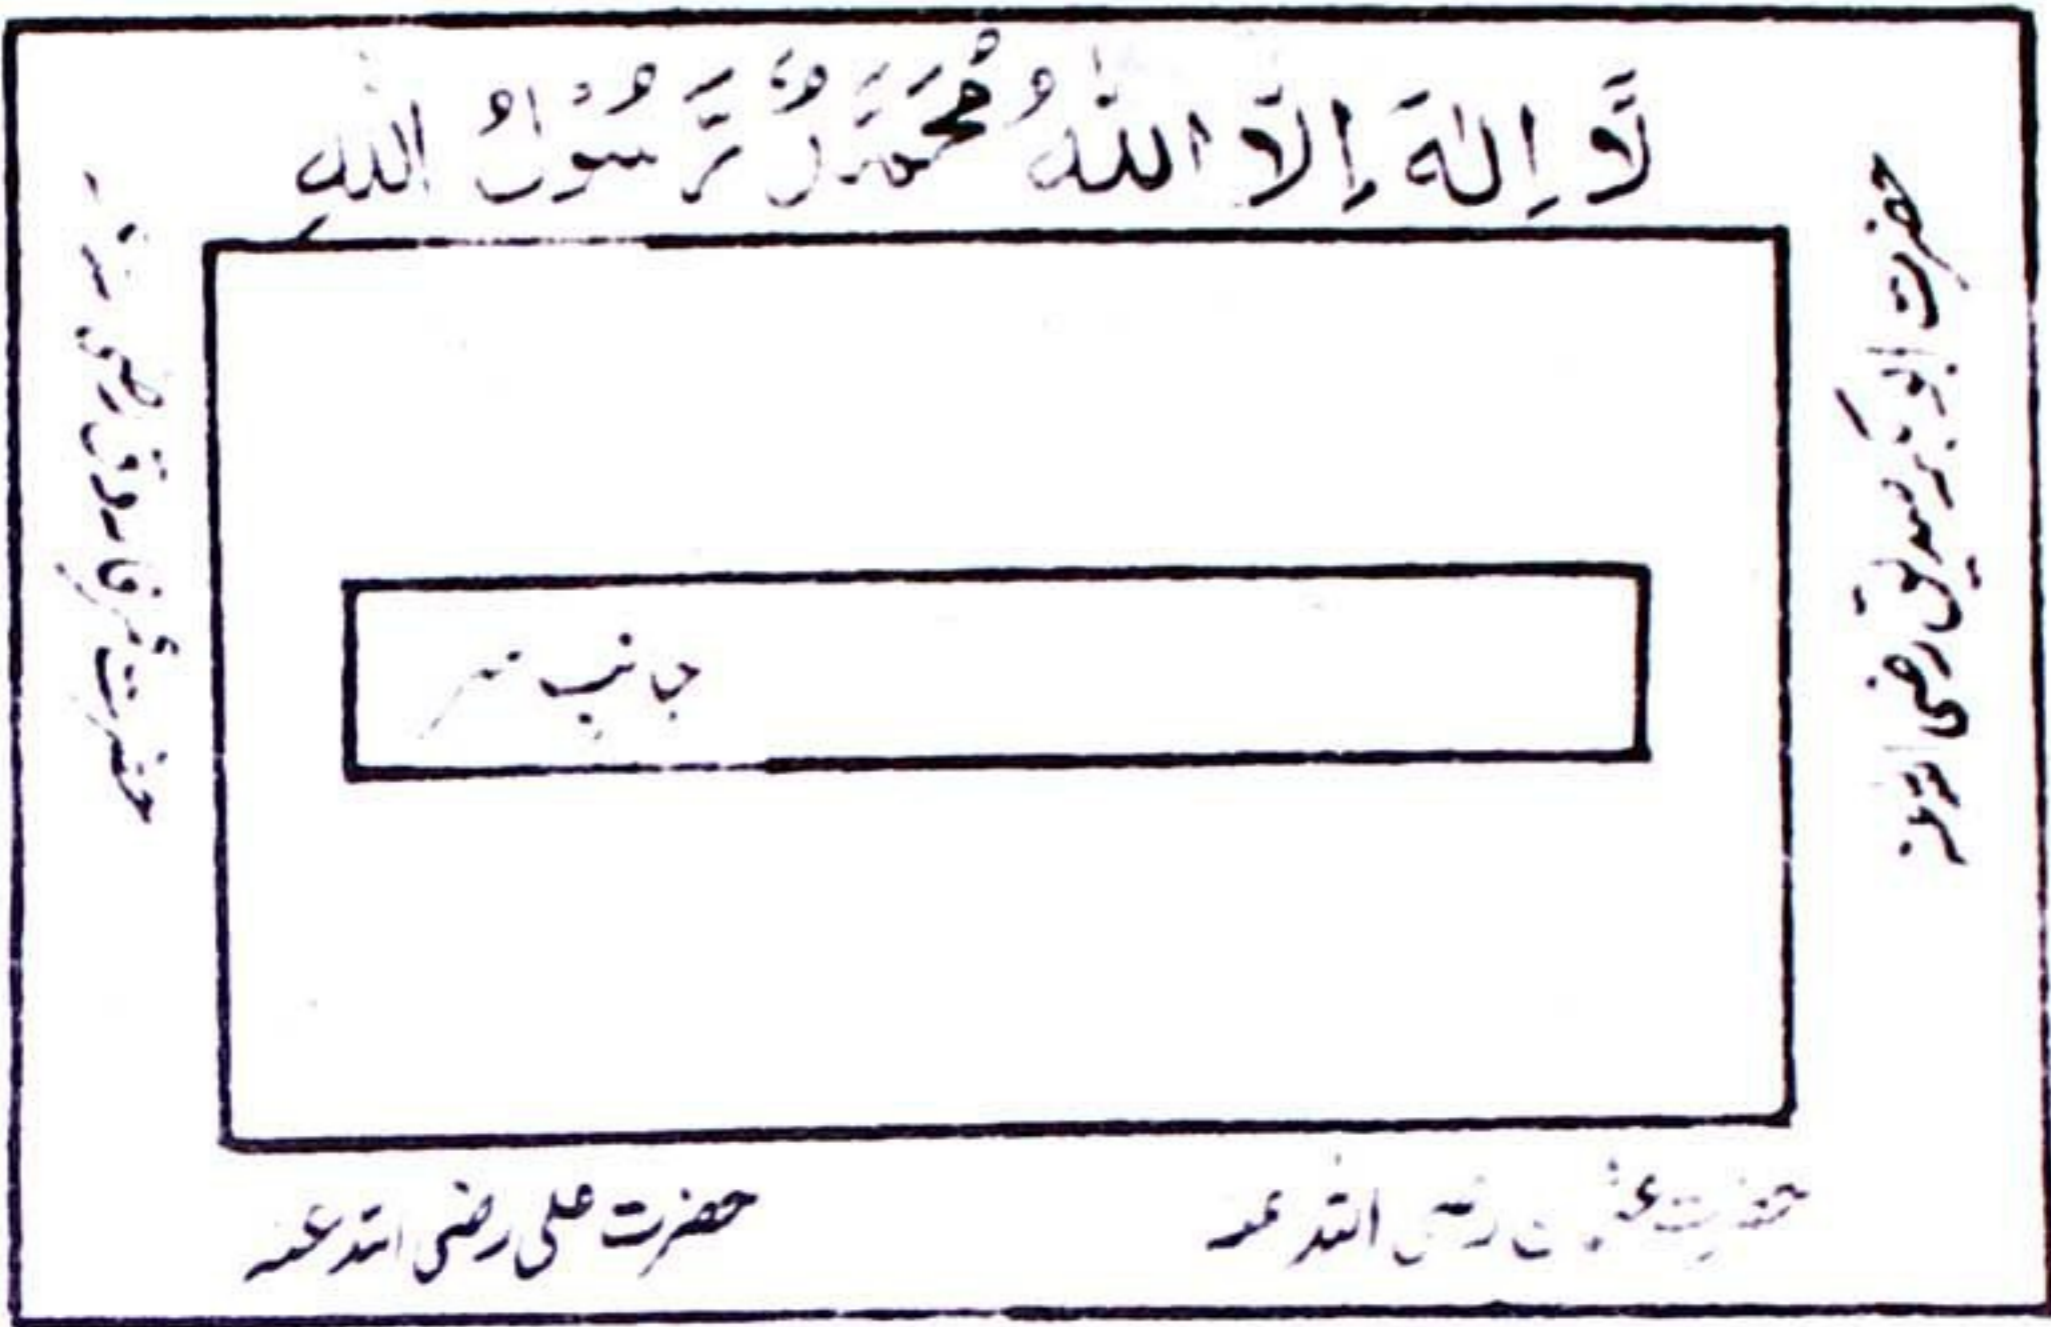 لَّا اِلٰهَ اِلَّا اللّٰهُ مُحَمَّدٌ رَّسُوْلُ اللّٰهِ
حضرت ابوبکر صدیق رضی اللہ عنہ
حضرت عمر فاروق رضی
جانب سر
حضرت عثمان رضی اللہ عنہ
حضرت علی رضی اللہ عنہ